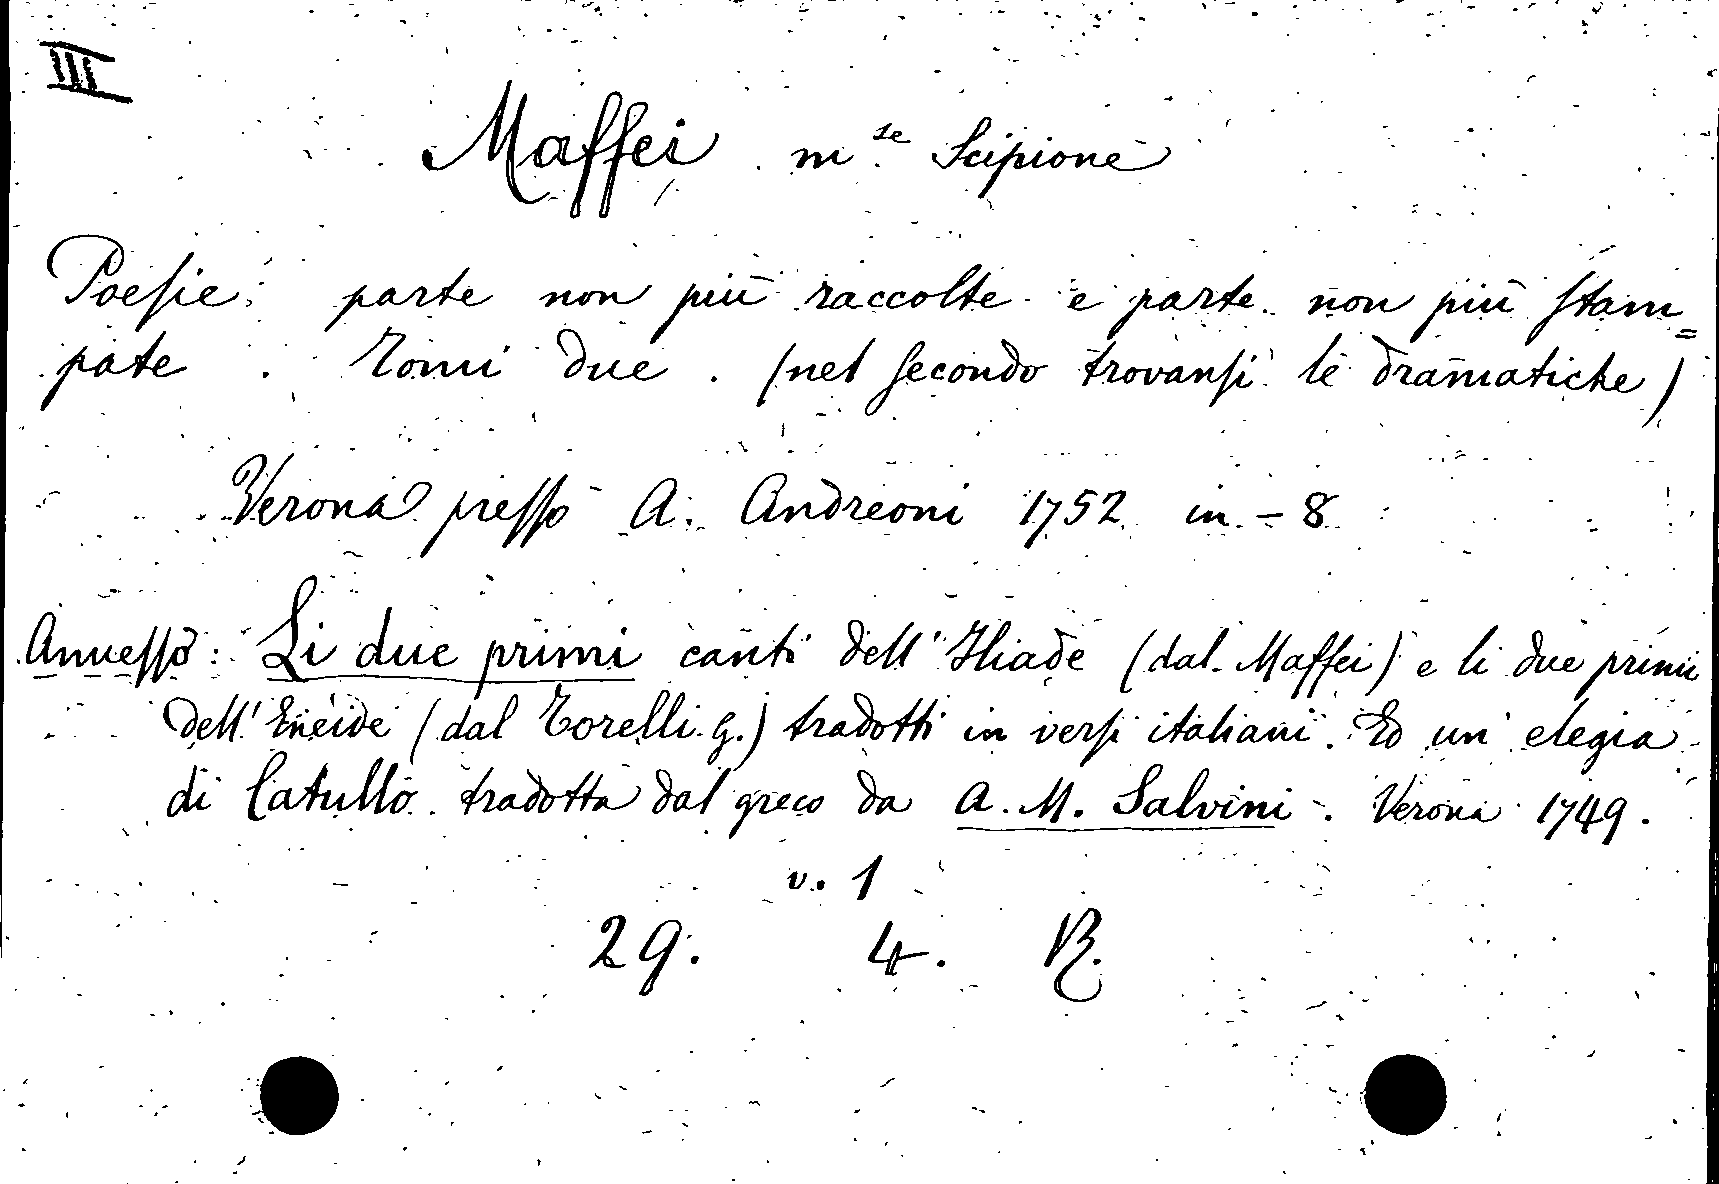 III
Maffei m.se Scipione
Poesie parte non più raccolte e parte non più stam=
pate. Tomi due. (nel secondo trovansi le dramatiche)
Verona presso A. Andreoni 1752 in-8
Annesso: Li due primi canti dell'Iliade (dal Maffei) e li due primi
dell'Eneide (dal Torelli G.) tradotti in versi italiani. Ed un elegia
di Catullo tradotta dal greco da A. M. Salvini. Verona 1749.
v. 1
29. 4. R.